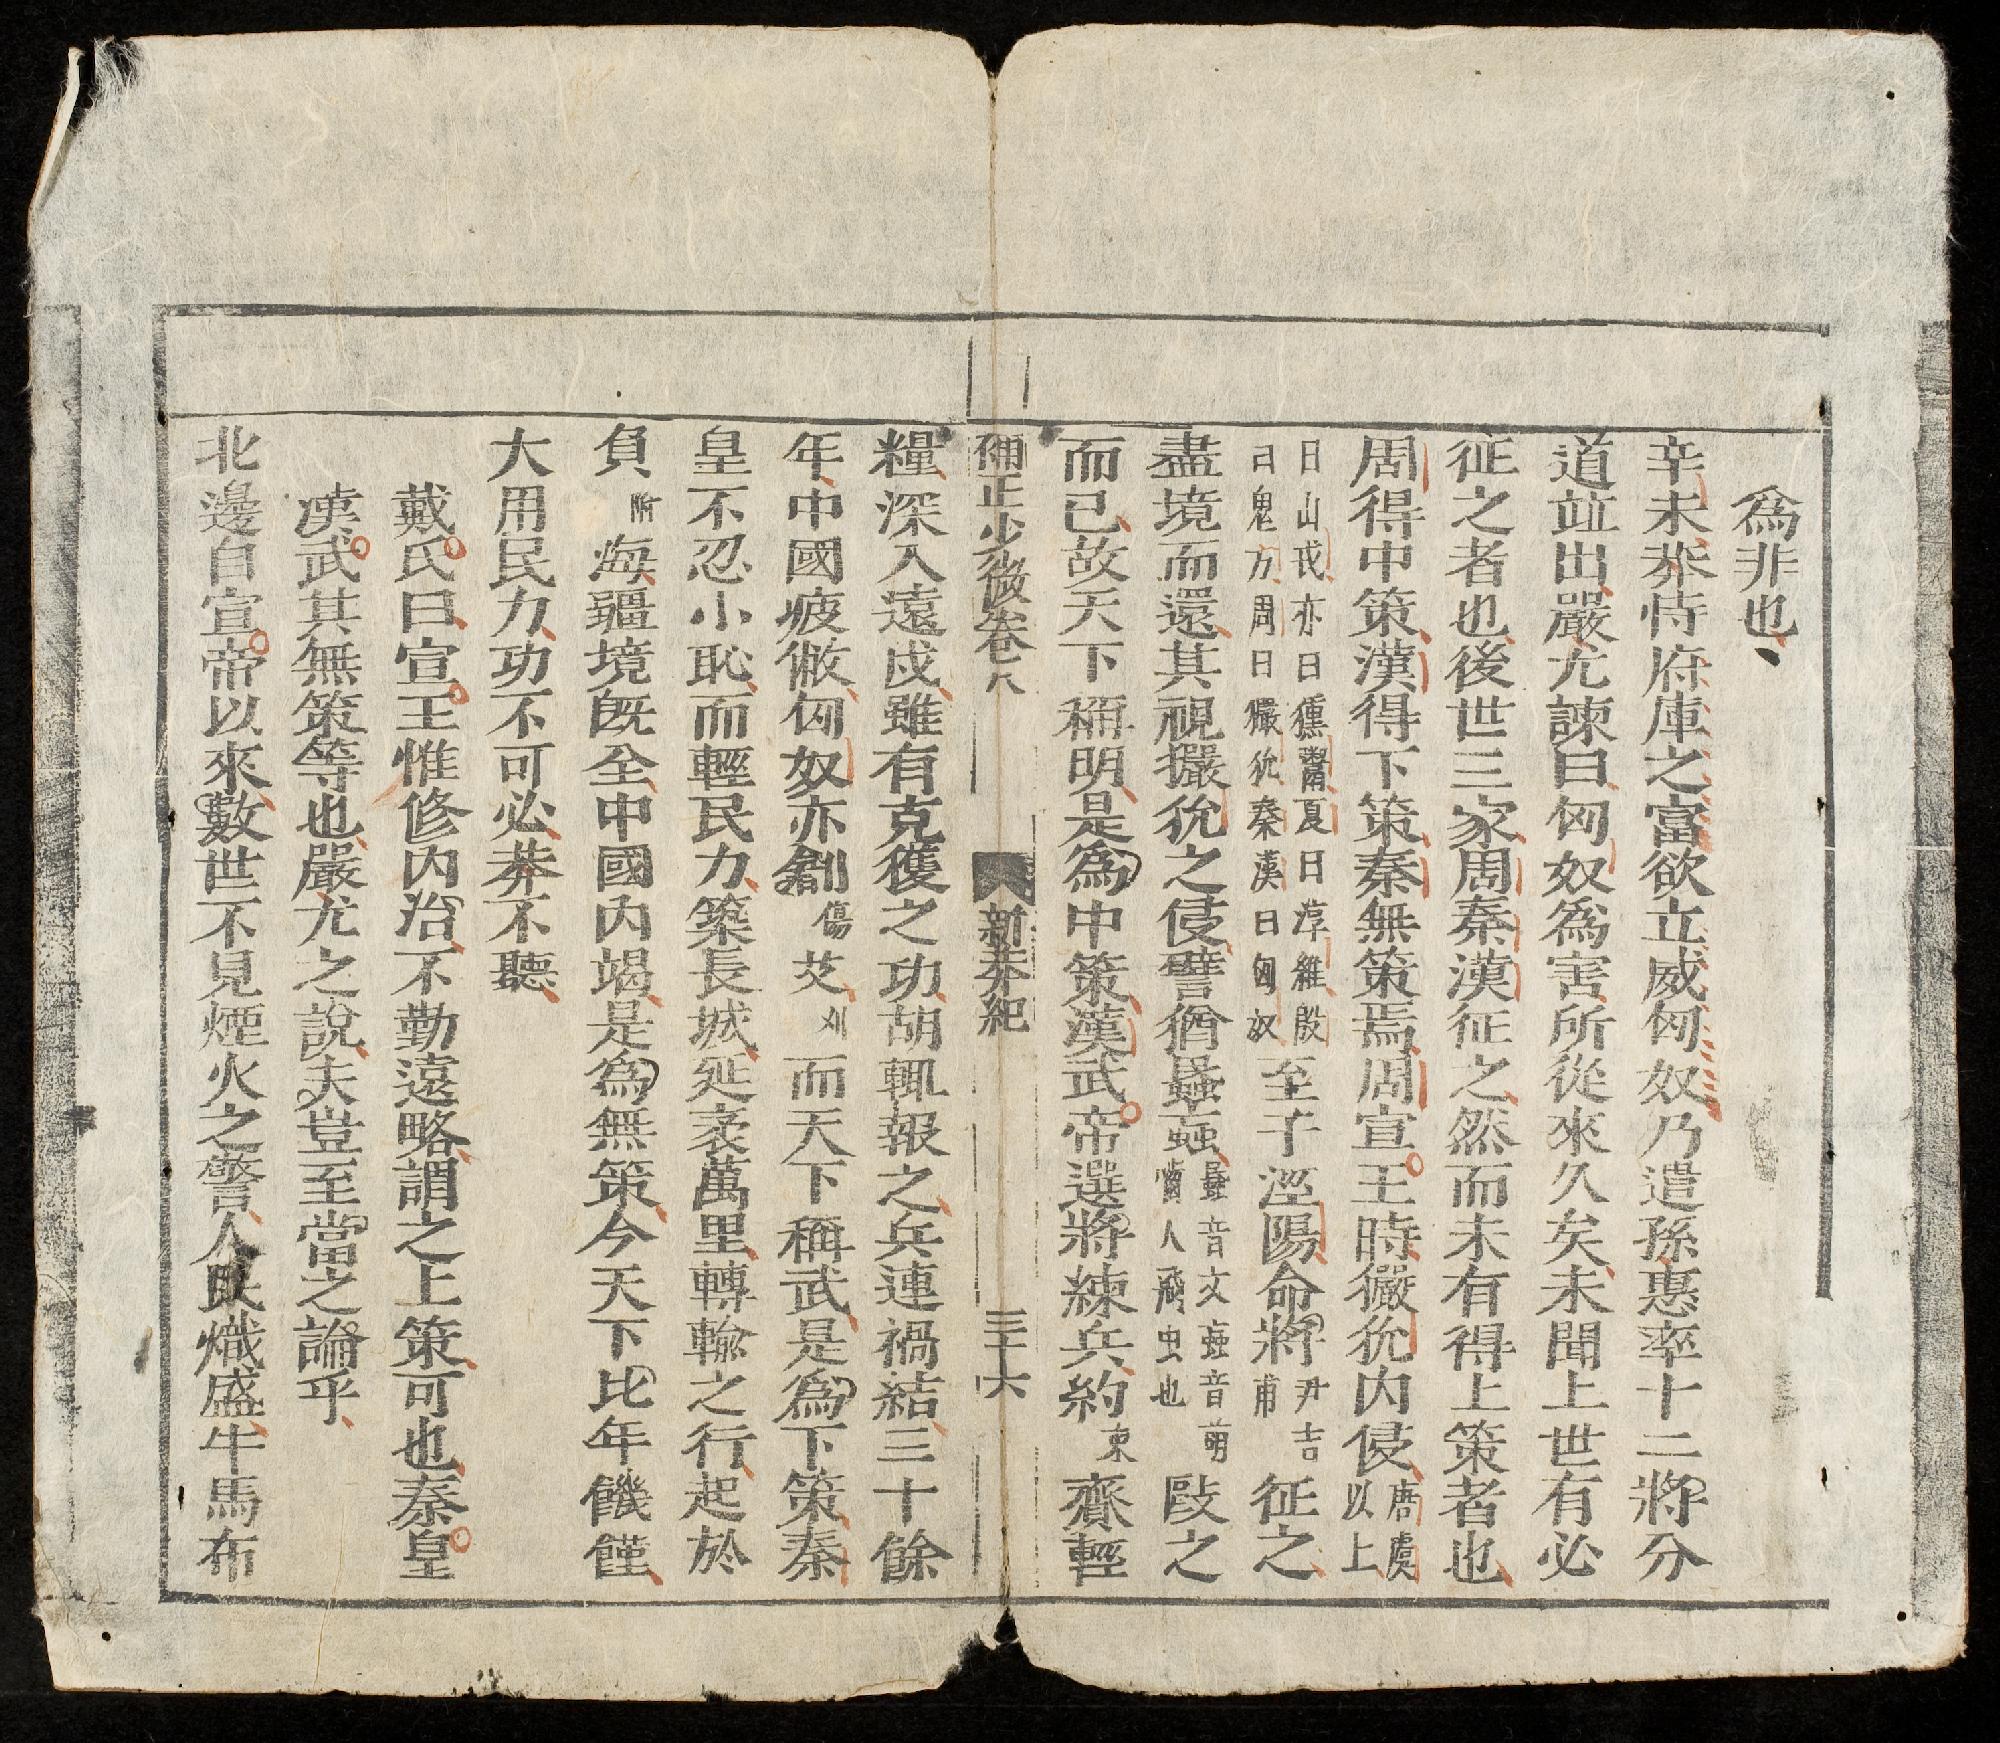 爲非也
辛未莽恃府庫之富欲立威匈奴乃遣孫惠率十二將分
道並出嚴尤諫曰匈奴爲害所從來久矣未聞上世有必
征之者也後世三家周秦漢征之然而未有得上策者也
周得中策漢得下策秦無策焉周宣王時玁狁內侵唐虞以上
曰山戎亦曰獯鬻夏曰淳維殷曰鬼方周曰玁狁秦漢曰匈奴至于涇陽命將尹吉甫征之
盡境而還其視玁狁之侵譬猶蟁蝱蟁音文蝱音萌嚙人飛虫也敺之
而已故天下稱明是爲中策漢武帝選將練兵約束齎輕
補正少微卷八 新莽紀 三十六
糧深入遠戍雖有克獲之功胡輒報之兵連禍結三十餘
年中國疲敝匈奴亦創傷艾刈而天下稱武是爲下策秦
皇不忍小恥而輕民力築長城延袤萬里轉輸之行起於
負附海疆境旣全中國內竭是爲無策今天下比年饑饉
大用民力功不可必莽不聽
戴氏曰宣王惟修內治不勤遠略謂之上策可也秦皇
漢武其無策等也嚴尤之說夫豈至當之論乎
北邊自宣帝以來數世不見煙火之警人民熾盛牛馬布